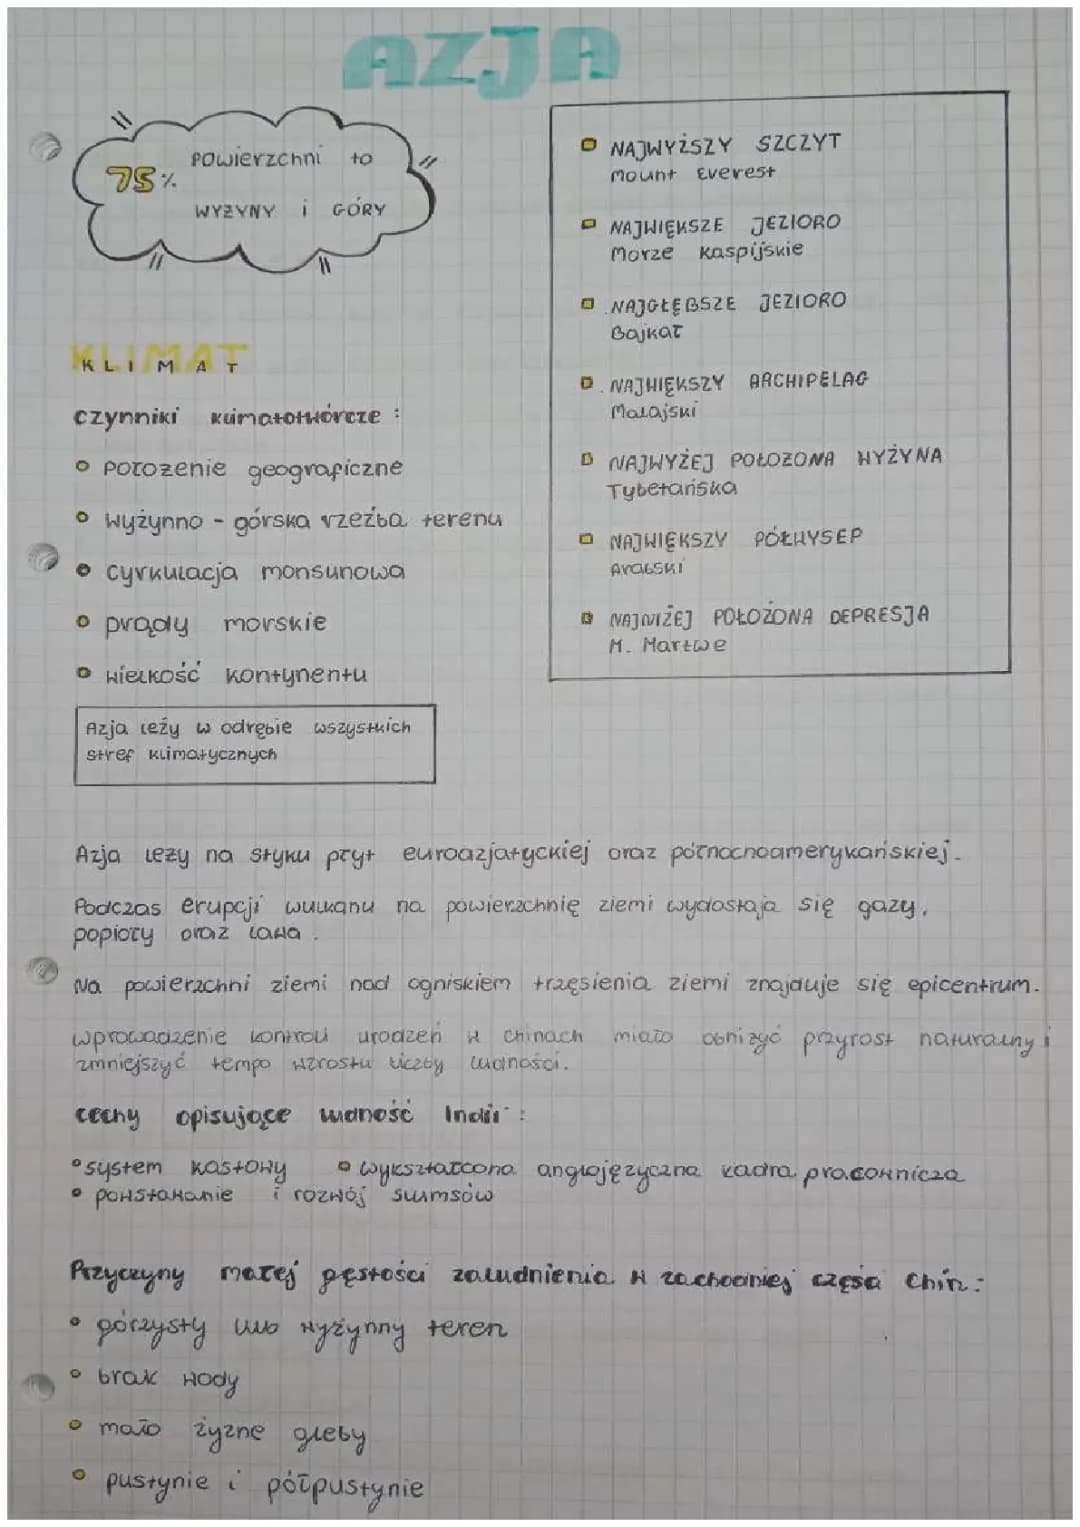 AZJA
75% POWierzchni to
WYŻYNY i GÓRY
NAJWYŻSZY SZCZYT
Mount Everest
NAJWIĘKSZE JEZIORO
Morze Kaspijskie
NAJGŁĘBSZE JEZIORO
Bajkał
NAJWIĘKSZY ARCHIPELAG
Malajski
NAJWYŻEJ POŁOŻONA WYŻYNA
Tybetańska
NAJWIĘKSZY PÓŁWYSEP
Arabski
NAJNIŻEJ POŁOŻONA DEPRESJA
M. Martwe
KLIMAT
czynniki klimatotwórcze :
położenie geograficzne
wyżynno - górska rzeźba terenu
cyrkulacja monsunowa
prądy morskie
wielkość kontynentu
Azja leży w odrębie wszystkich
stref klimatycznych
Azja leży na styku płyt euroazjatyckiej oraz północnoamerykańskiej.
Podczas erupcji wulkanu na powierzchnię ziemi wydostają się gazy,
popioły oraz lawa.
Na powierzchni ziemi nad ogniskiem trzęsienia ziemi znajduje się epicentrum.
wprowadzenie kontroli urodzeń w Chinach miało obniżyć przyrost naturalny i
zmniejszyć tempo wzrostu liczby ludności.
cechy opisujące ludność Indii :
system kastowy wykształcona anglojęzyczna kadra pracownicza
powstawanie i rozwój slumsów
Przyczyny małej gęstości zaludnienia w zachodniej części Chin:
górzysty lub wyżynny teren
brak wody
mało żyzne gleby
pustynie i półpustynie